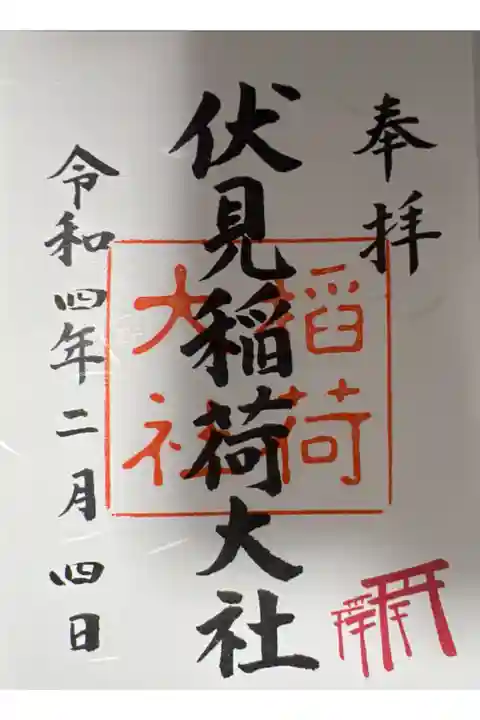 奉拝
伏見稲荷大社
稲荷
大社
令和四年二月四日